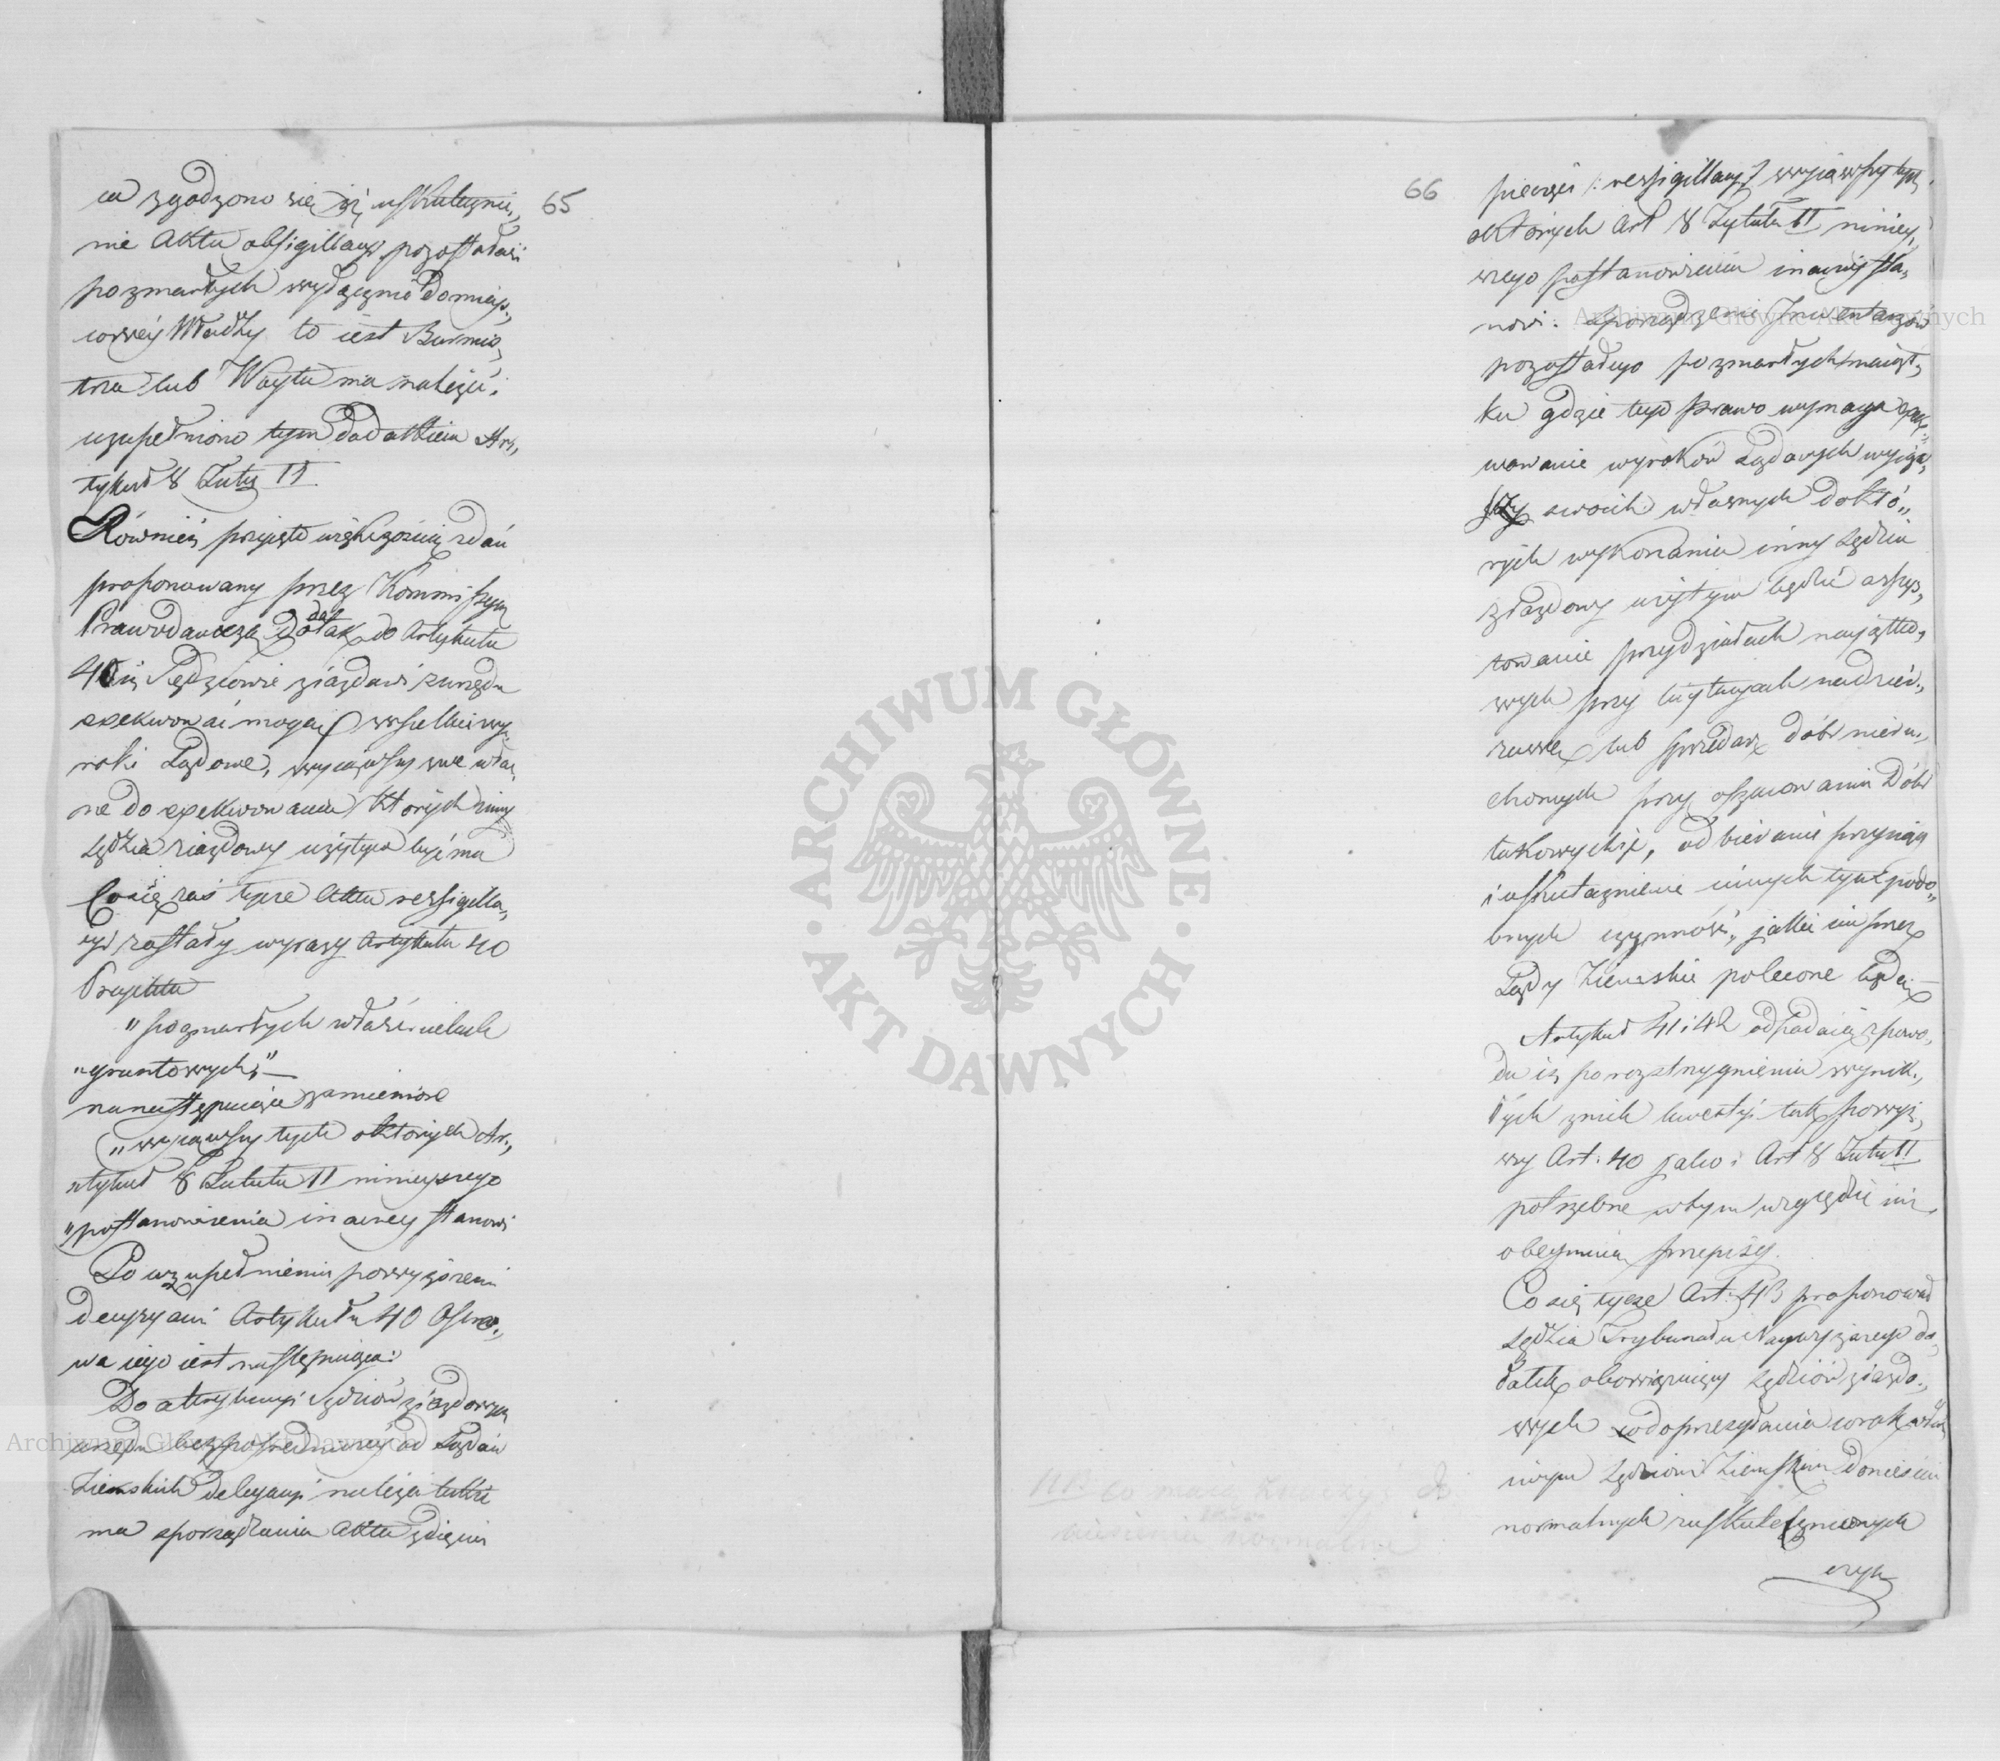 65
ca zgodzono się iż uskuteznie„
nie Aktu obsigillacyi pozostałości
po zmarłych wyłącznie Do miejs„
cowéy Władzy to iest Burmis„
trza lub Woyta ma należeć i
uzupełniono tym dodatkiem Ar„
tykuł 8 Tytu II.
Również przyjęto większością zdań
proponowany przez Kommissyą
Prawodawczą dodatek do Artykułu
40 iż Sędziowie ziazdowi z urzędu
exekwować mogą wszelkie wy„
roki Sądowe, wyiąwszy swe włas„
ne do exekwowania których inny
Sędzia ziazdowy użytym być ma
Co się zaś tycze Aktu ressigilla„
cyi zostały wyrazy Artykułu 40
Projektu
"po zmarłych właścicielach
"gruntowych„" —
na następuiące zamienione
„wyiąwszy tych o których Ar„
„tykuł 8 Tytułu II ninieyszego
"postanowienia inaczey stanowi
Po uzupełnieniu powyższemi
decyzyami Artykułu 40 Osno„
wa iego iest następuiąca:
Do attrybucyi Sędziów ziazdowych
urzędu bezpośredniéy od Sądów
Ziemskich delegacyi należą także
ma sporządzania Aktu zdięcia
66
pieczęci /: ressigillacyi / wyiąwszy tych
o których Art 8 Tytułu II niniey„
szego postanowienia inaczéy sta„
nowi. Sporządzenie Inwentarzów
pozostałego po zmarłych maiąt„
ku gdzie tego Prawo wymaga exeq„
wowanie wyroków Sądowych wyiąw„
szy swoich własnych do któ„
rych wykonania inny Sędzia
ziazdowy użytym będzie assys„
towanie przy działach maiątko„
wych przy licytacyach na dzier„
żawę lub sprzedaż dóbr nieru„
chomych przy oszacowaniu Dóbr
takowychże, odbieranie przysiąg
i uskutecznienie innych tym podo„
bnych czynności, jakie im przez
Sądy Ziemskie polecone będą —
Artykuł 41 i 42 odpadaią z powo„
du iż po rozstrzygnieniu wynik„
łych z nich kwestyi tak powyż„
szy Art: 40 jako i Art 8 Tytu II
potrzebne w tym względzie iuż
obeymuią przepisy.
Co się tycze Art: 43 proponował
Sędzia Trybunału Naywyższego do„
datek obowiązuiący Sędziów ziazdo„
wych do przesyłania w rok
Sędziom Ziemskim doniesień
normalnych z uskutecznionych
czyn